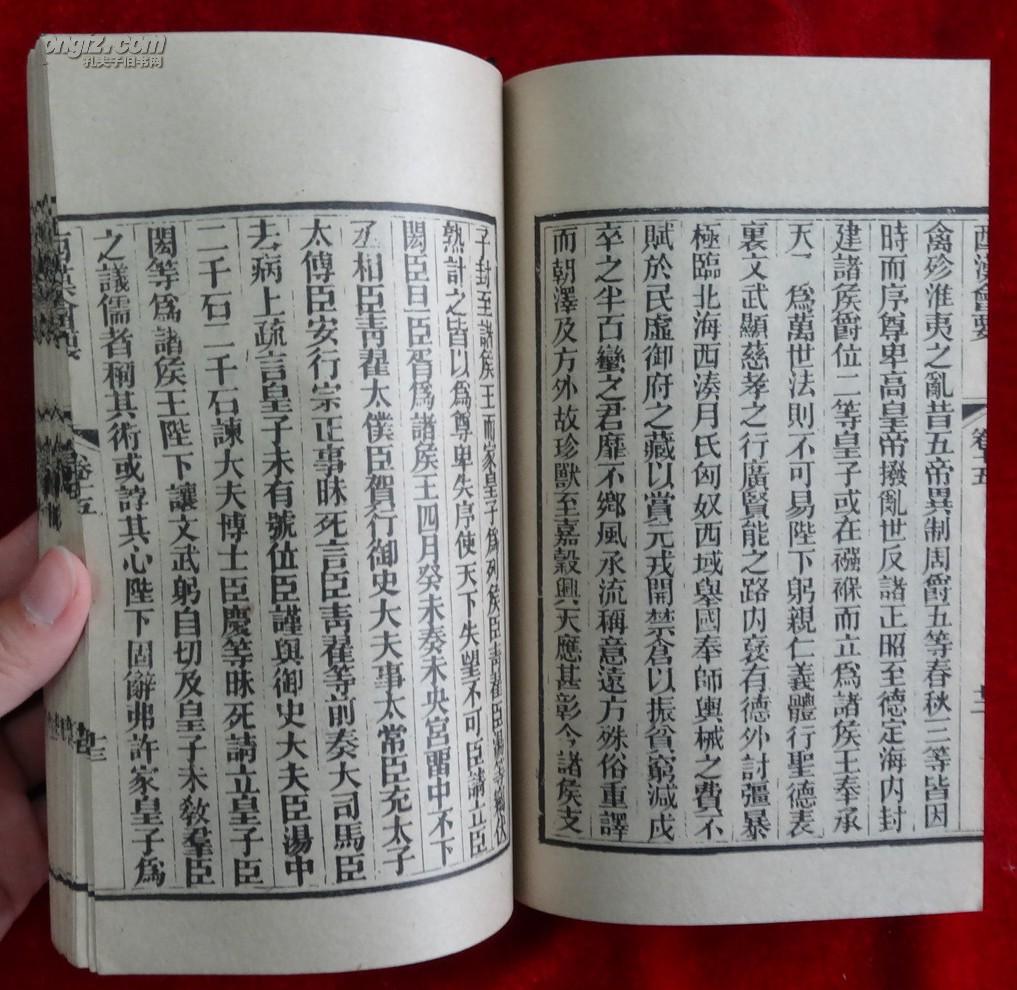 ongiz.com
孔夫子旧书网
西漢會要
卷十五
十二
禽殄淮夷之亂昔五帝異制周爵五等春秋三等皆因
時而序尊卑高皇帝撥亂世反諸正昭至德定海內封
建諸侯爵位二等皇子或在襁褓而立爲諸侯王奉承
天子爲萬世法則不可易陛下躬親仁義體行聖德表
裏文武顯慈孝之行廣賢能之路內襃有德外討彊暴
極臨北海西湊月氏匈奴西域舉國奉師輿械之費不
賦於民虛御府之藏以賞元戎開禁倉以振貧窮減戍
卒之半百蠻之君靡不鄉風承流稱意遠方殊俗重譯
而朝澤及方外故珍獸至嘉穀興天應甚彰今諸侯支
子封至諸侯王而家皇子爲列侯臣靑翟臣湯等竊伏
熟計之皆以爲尊卑失序使天下失望不可臣請立臣
閎臣旦臣胥爲諸侯王四月癸未奏未央宮畱中不下
丞相臣靑翟太僕臣賀行御史大夫事太常臣充太子
太傅臣安行宗正事昧死言臣靑翟等前奏大司馬臣
去病上疏言皇子未有號位臣謹與御史大夫臣湯中
二千石二千石諫大夫博士臣慶等昧死請立皇子臣
閎等爲諸侯王陛下讓文武躬自切及皇子未敎羣臣
之議儒者稱其術或誖其心陛下固辭弗許家皇子爲
西漢會要
卷十五
十三